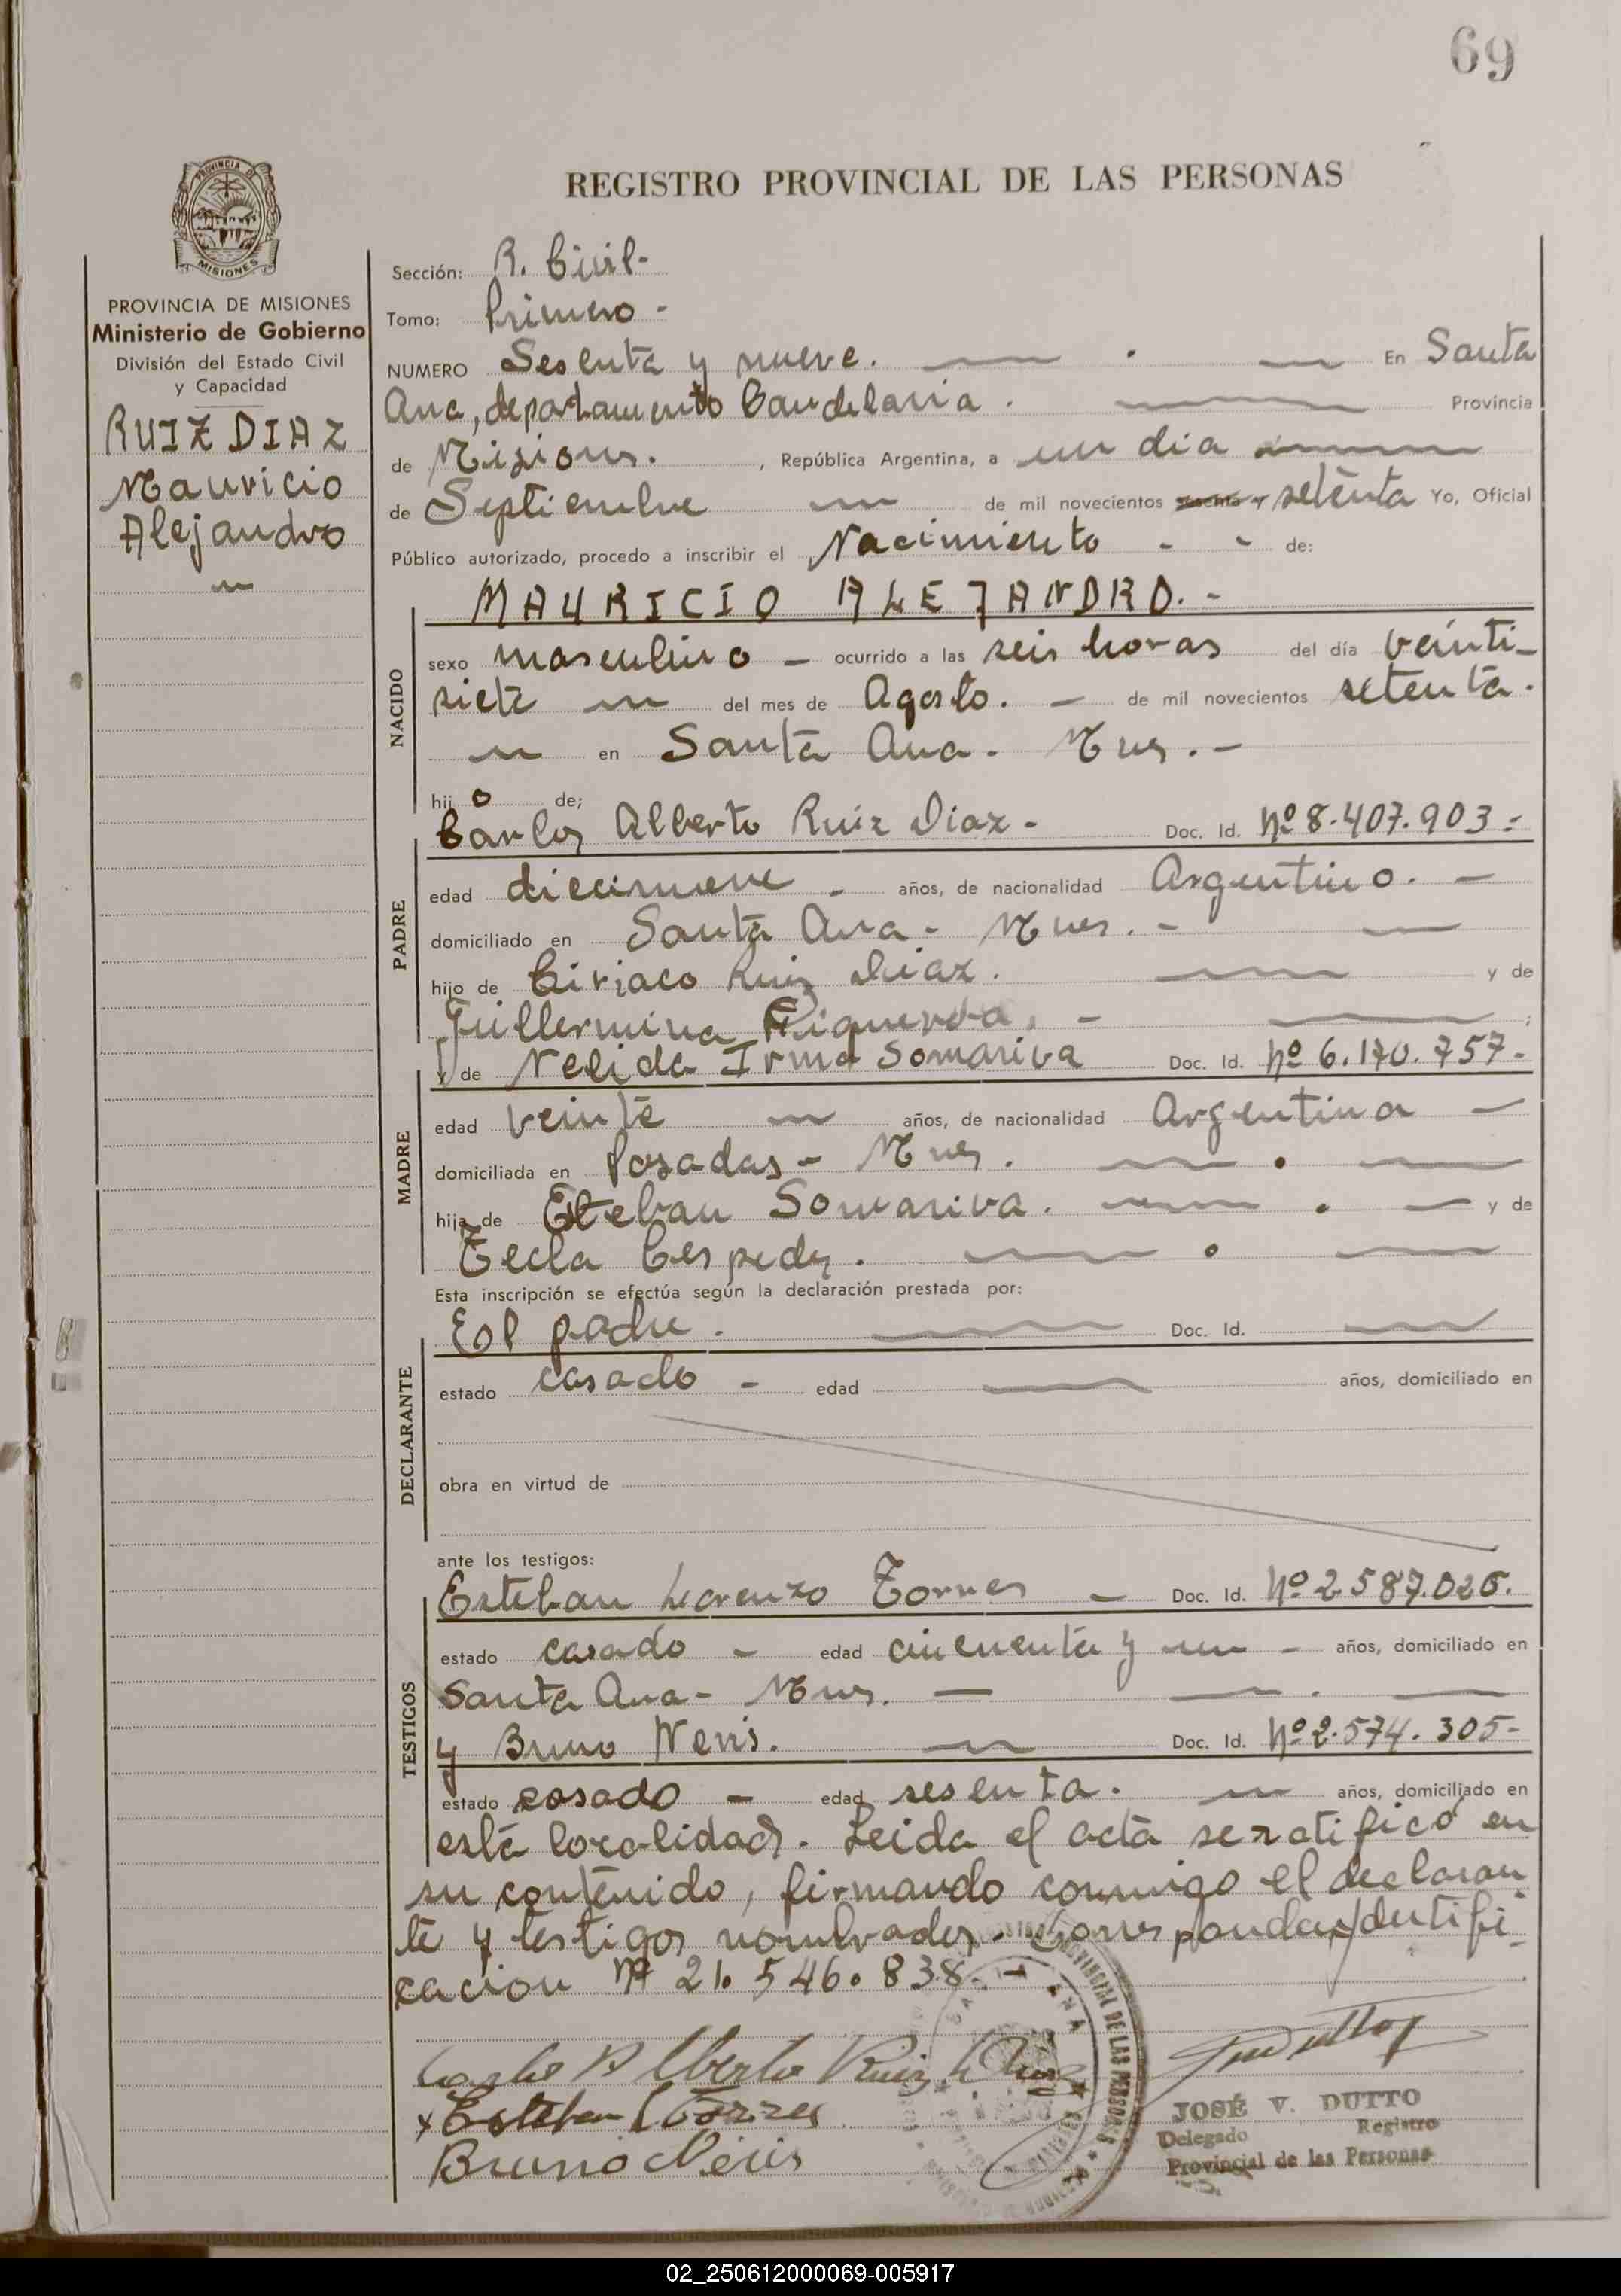 69
REGISTRO PROVINCIAL DE LAS PERSONAS
PROVINCIA DE
MISIONES
PROVINCIA DE MISIONES
Ministerio de Gobierno
División del Estado Civil
y Capacidad
RUIZ DIAZ
Mauricio
Alejandro
Sección: R. Civil-
Tomo: Primero -
NUMERO Sesenta y nueve. En Santa
Ana, departamento Candelaria. Provincia
de Misiones. , República Argentina, a un dia
de Septiembre de mil novecientos sesenta y setenta Yo, Oficial
Público autorizado, procedo a inscribir el Nacimiento - - de:
MAURICIO ALEJANDRO. -
NACIDO
sexo masculino - ocurrido a las seis horas del día veinti-
siete del mes de Agosto. - de mil novecientos setenta.
en Santa Ana - Mnes. -
hijo de;
PADRE
Carlos Alberto Ruiz Diaz - Doc. Id. Nº 8.407.903 -
edad diecinueve - años, de nacionalidad Argentino. -
domiciliado en Santa Ana - Mnes. -
hijo de Ciriaco Ruiz Diaz. y de
Guillermina Figueroa. - ;
MADRE
y de Nelida Irma Somariva Doc. Id. Nº 6.170.757 -
edad veinte años, de nacionalidad Argentina -
domiciliada en Posadas - Mnes.
hija de Esteban Somariva. y de
Tecla Cespedes.
Esta inscripción se efectúa según la declaración prestada por:
DECLARANTE
El padre. Doc. Id.
estado casado - edad años, domiciliado en
obra en virtud de
ante los testigos:
TESTIGOS
Esteban Lorenzo Torres - Doc. Id. Nº 2.587.026.
estado casado - edad cincuenta y un - años, domiciliado en
Santa Ana - Mnes. -
y Bruno Neris. Doc. Id. Nº 2.574.305 -
estado casado - edad sesenta. años, domiciliado en
esta localidad. Leida el acta se ratificó en
su contenido, firmando conmigo el declaran
te y testigos nombrados. - Corresponde Identifi-
cacion Nº 21.546.838. -
Carlos Alberto Ruiz Diaz
x Esteban L Torres
Bruno Neris
JOSÉ V. DUTTO
Delegado Registro
Provincial de las Personas
02_250612000069-005917